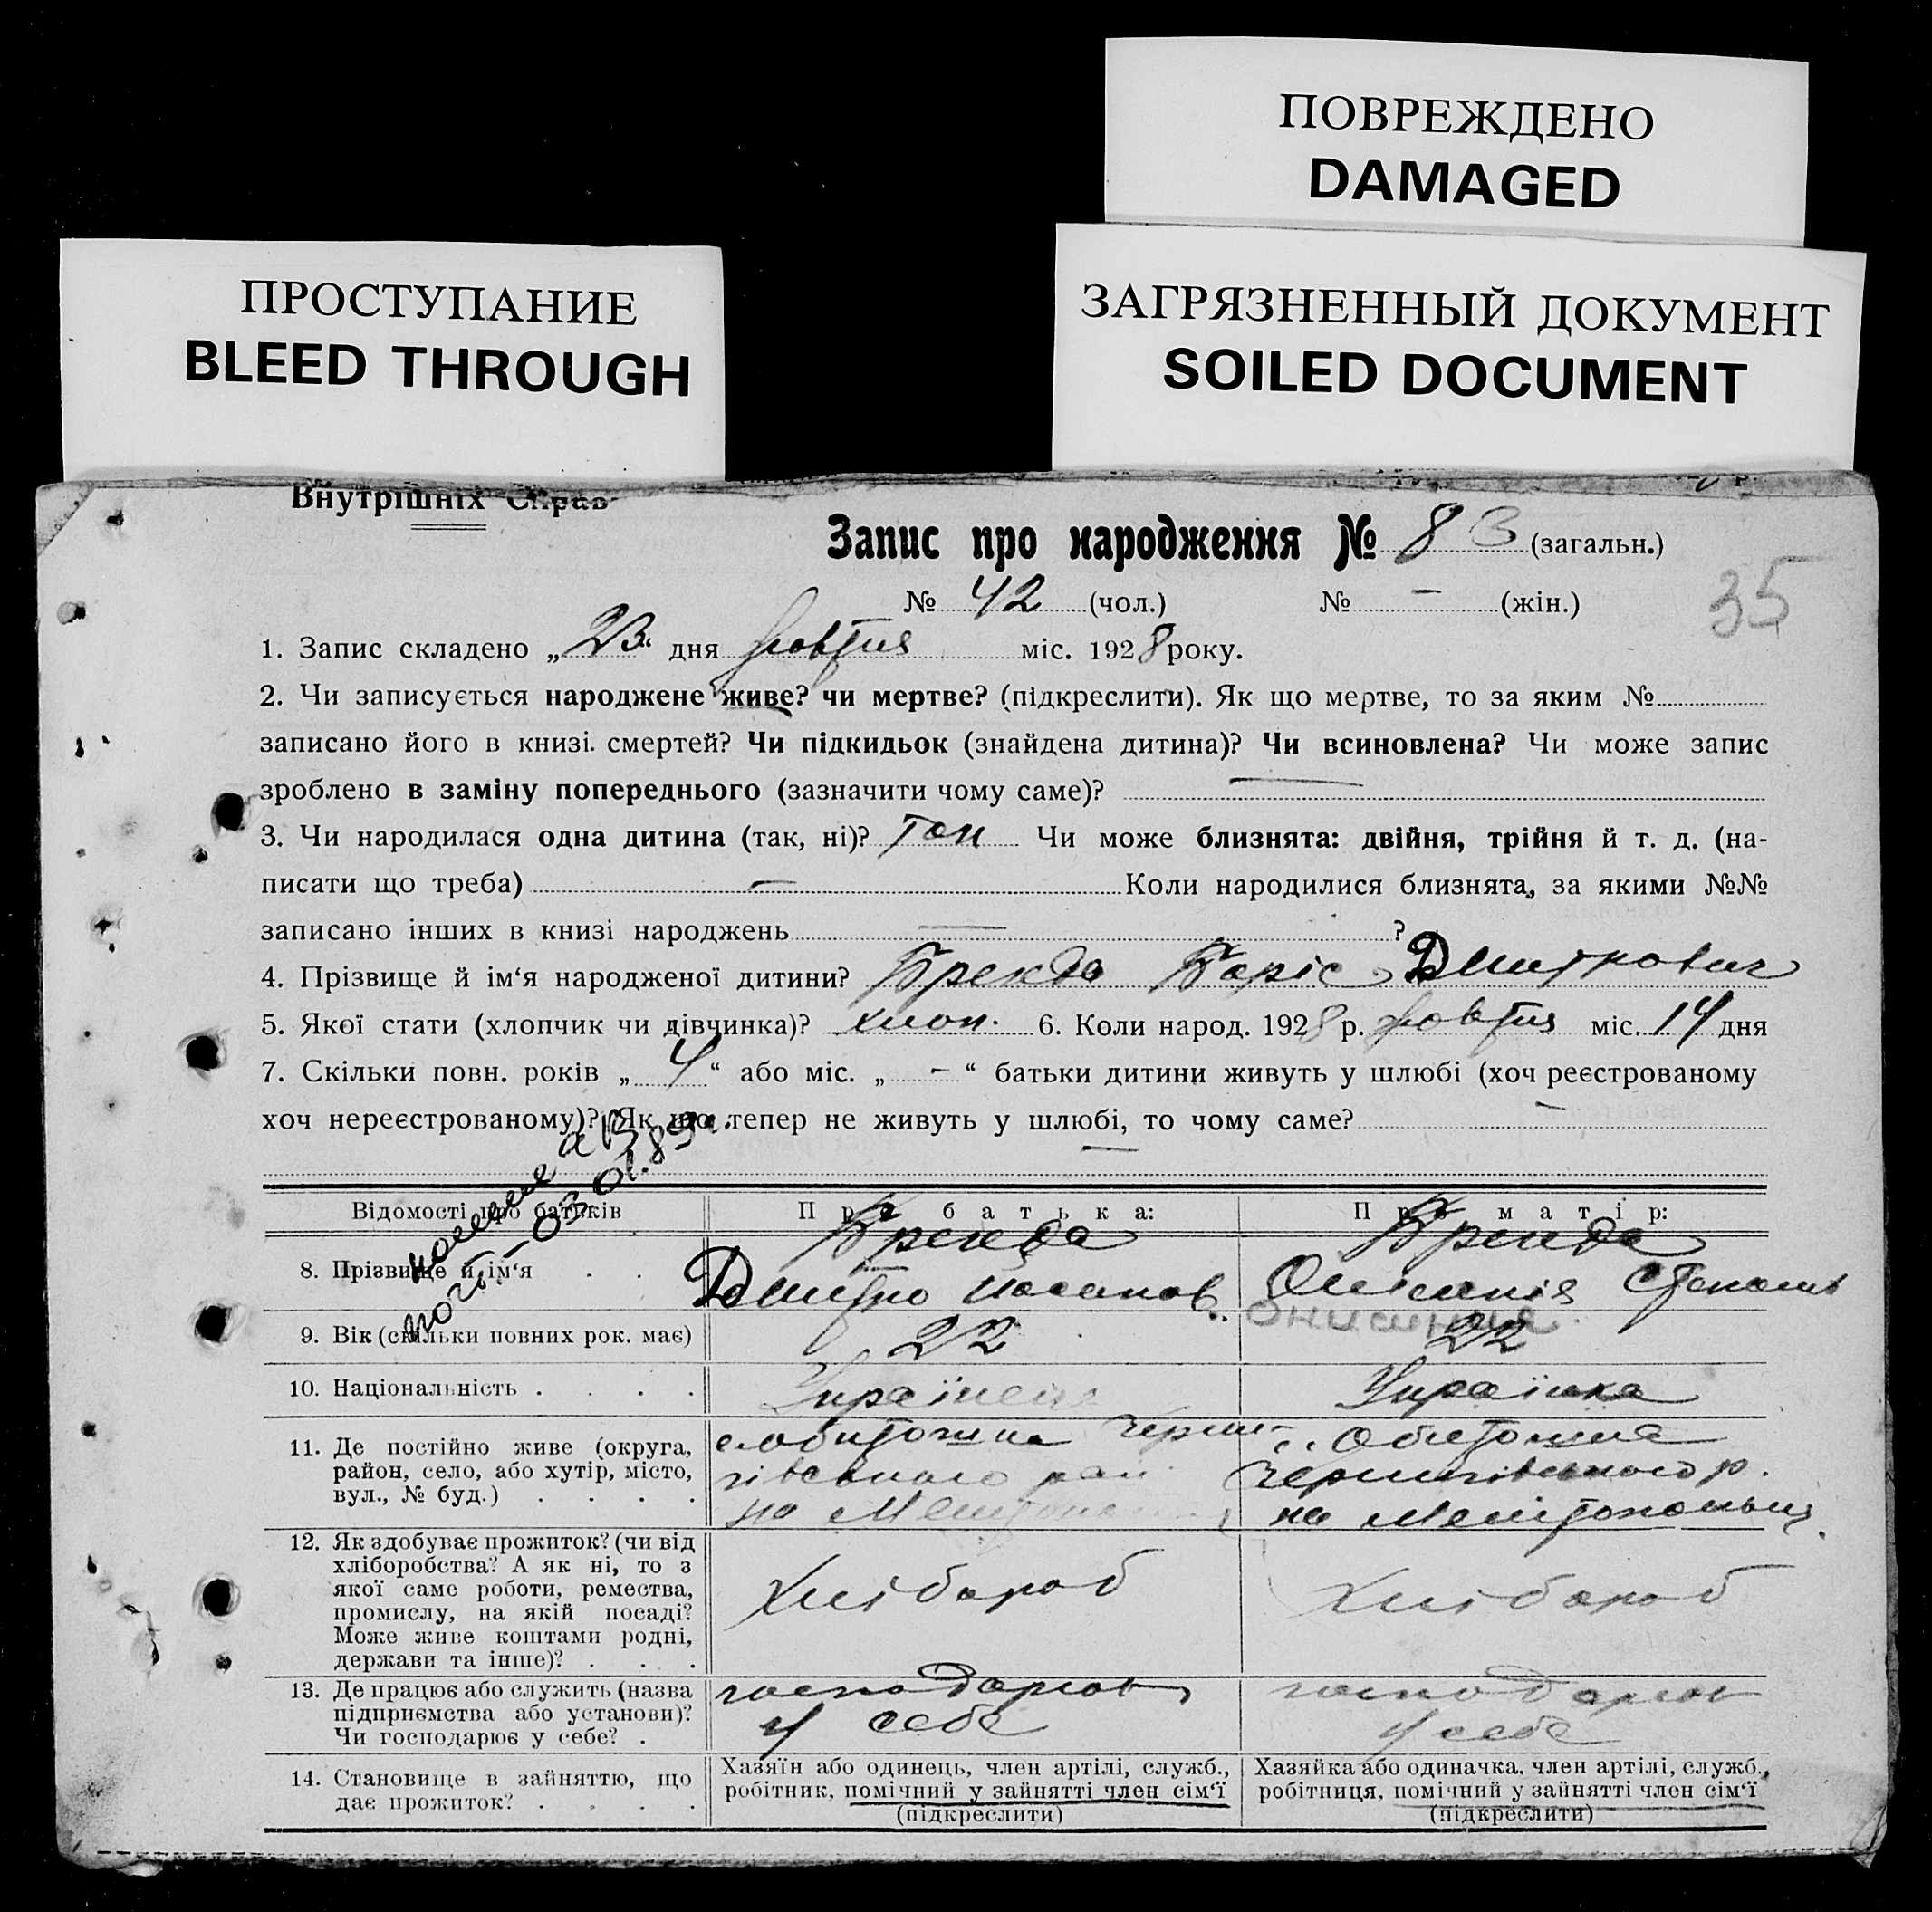 ПОВРЕЖДЕНО
DAMAGED
ПРОСТУПАНИЕ
BLEED THROUGH
ЗАГРЯЗНЕННЫЙ ДОКУМЕНТ
SOILED DOCUMENT
Внутрішніх Справ
Запис про народження № 83 (загальн.)
№ 42 (чол.) № — (жін.)
35
1. Запис складено „23“ дня жовтня міс. 1928 року.
2. Чи записується народжене живе? чи мертве? (підкреслити). Як що мертве, то за яким №
записано його в книзі смертей? Чи підкидьок (знайдена дитина)? Чи всиновлена? Чи може запис
зроблено в заміну попереднього (зазначити чому саме)? —
3. Чи народилася одна дитина (так, ні)? так Чи може близнята: двійня, трійня й т. д. (на-
писати що треба) — Коли народилися близнята, за якими №№
записано інших в книзі народжень — ?
4. Прізвище й ім‘я народженої дитини? Бренда Боріс Дмитрович
5. Якої стати (хлопчик чи дівчинка)? хлоп. 6. Коли народ. 1928 р. жовтня міс. 14 дня
7. Скільки повн. років „4“ або міс. „-“ батьки дитини живуть у шлюбі (хоч реєстрованому
хоч нереєстрованому)? Як що тепер не живуть у шлюбі, то чому саме? —
—
03.01.89г.
Відомості про батьків Про батька: Про матір:
Бренда Бренда
8. Прізвище й ім‘я . . Дмитро
9. Вік (скільки повних рок. має) 22 22
10. Національність . . . . Українець Українка
11. Де постійно живе (округа, район, село, або хутір, місто, вул., № буд.) . . . .
с. Обіточна Черни-
гівського рай.
на Меліт
с. Обіточна
Чернигівського р.
на Мелітопольщ.
12. Як здобуває прожиток? (чи від
хліборобства? А як ні, то з
якої саме роботи, ремества,
промислу, на якій посаді?
Може живе коштами родні,
держави та інше)? . . . .
Хлібороб Хлібороб
13. Де працює або служить (назва
підприємства або установи)?
Чи господарює у себе? .
господарює
у себе
господарює
у себе
14. Становище в зайняттю, що
дає прожиток? . . . .
Хазяїн або одинець, член артілі, служб.,
робітник, помічний у зайнятті член сім‘ї
(підкреслити)
Хазяйка або одиначка, член артілі, служб.,
робітниця, помічний у зайнятті член сім‘ї
(підкреслити)